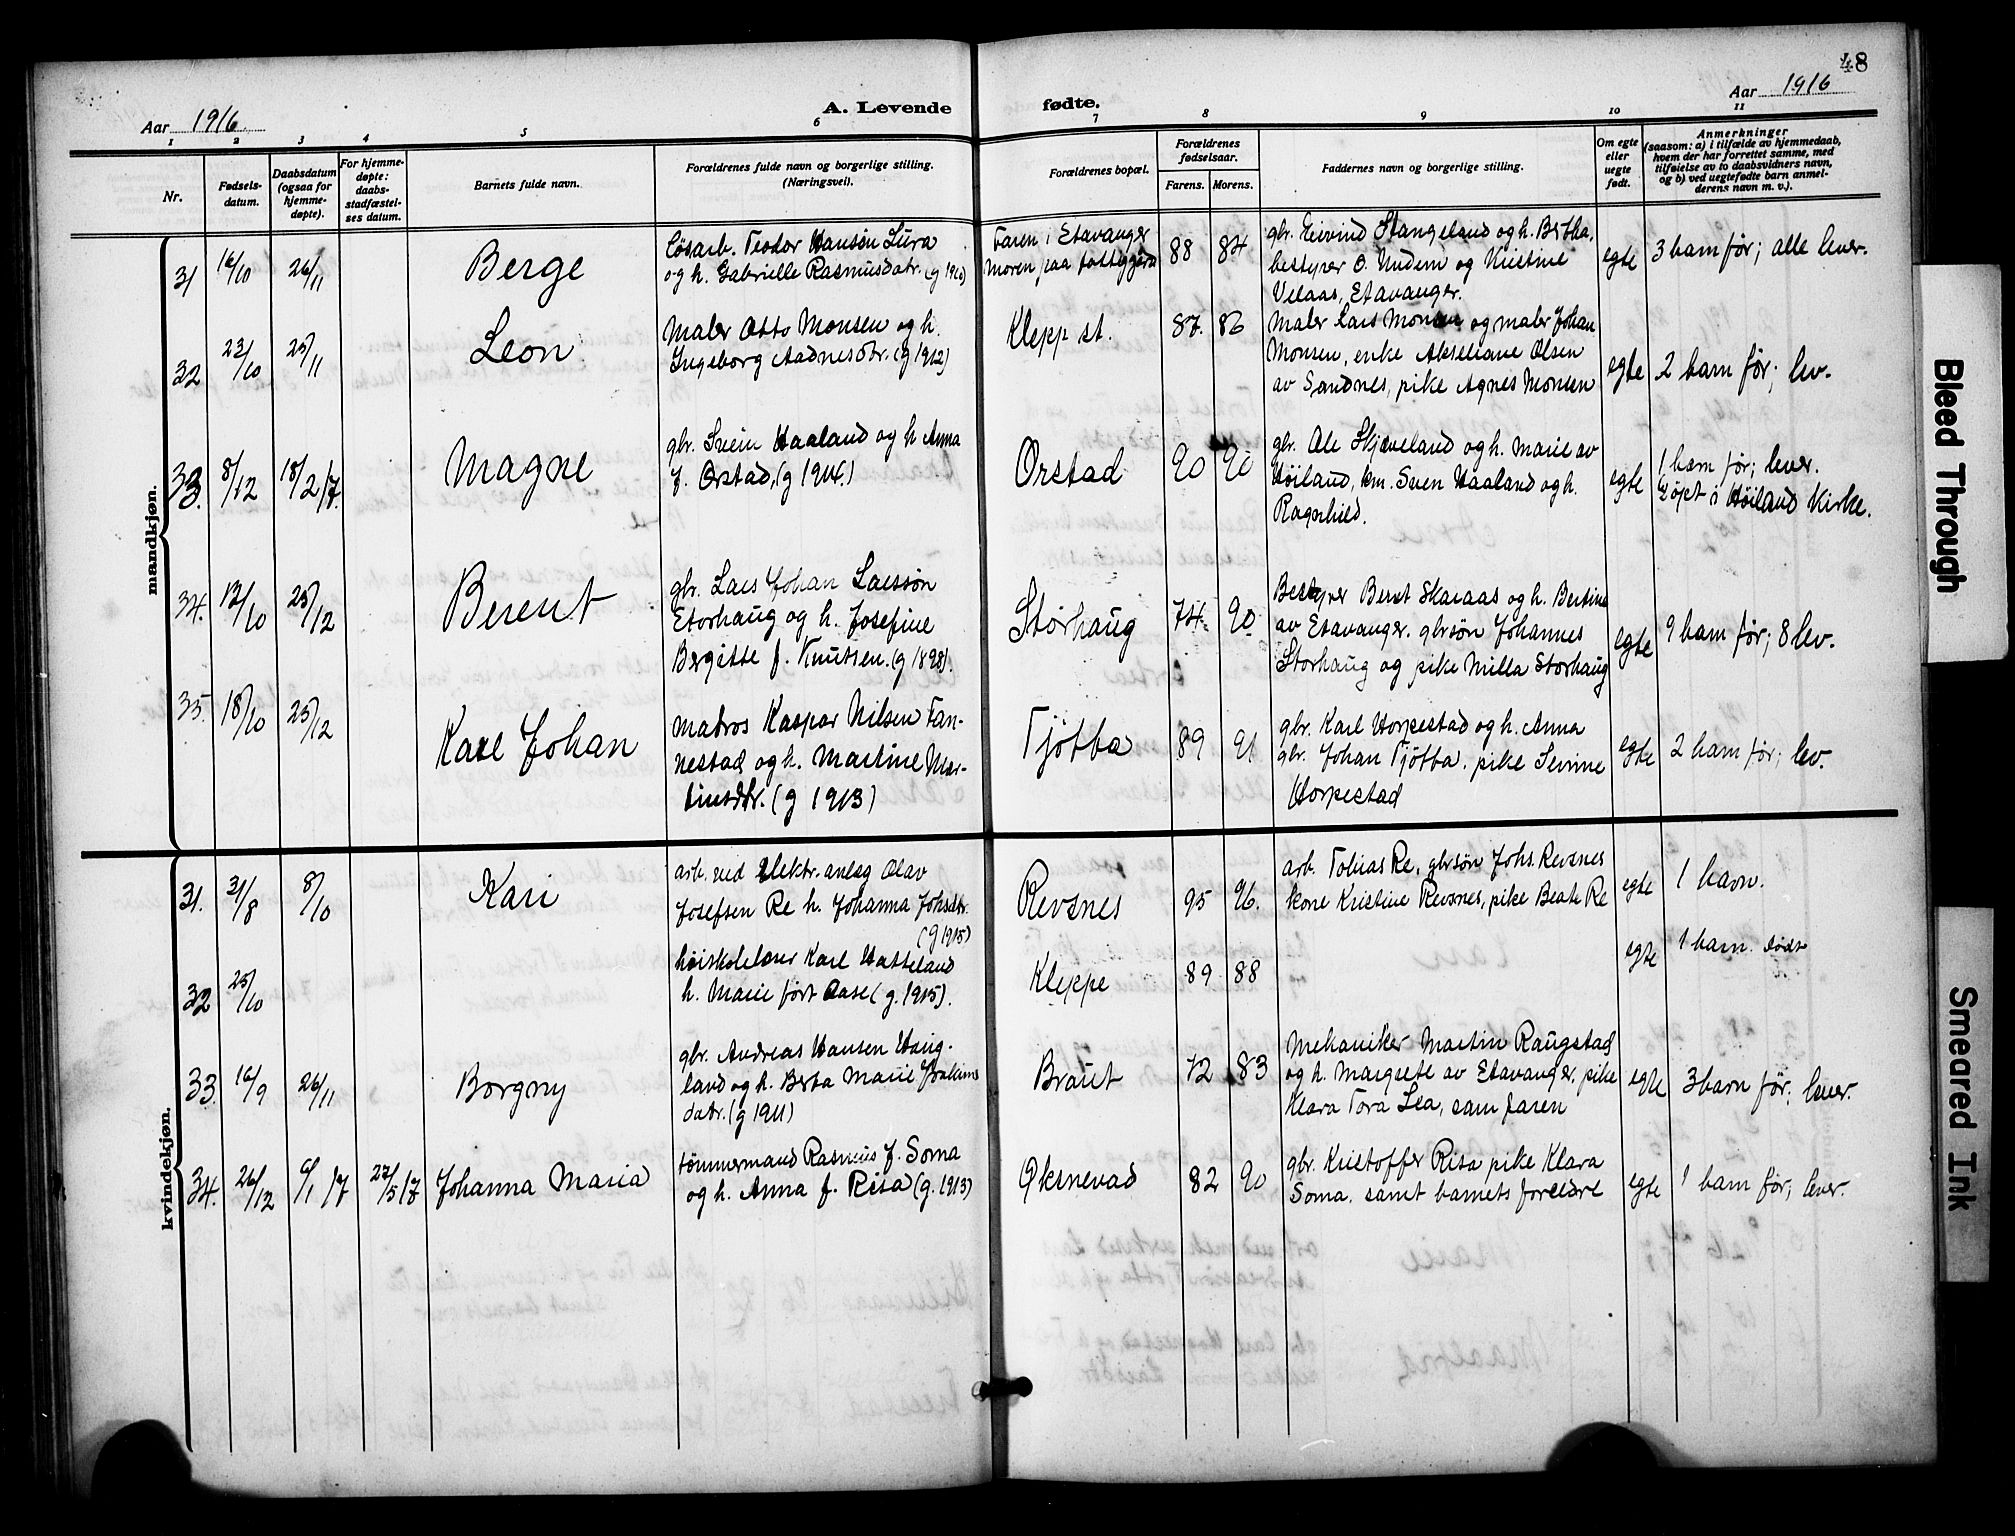 48
Aar 1916
A. Levende fødte.
Aar 1916
1 2 3 4 5 6 7 8 9 10 11
Nr.
Fødsels-
datum.
Daabsdatum
(ogsaa for
hjemme-
døpte).
For hjemme-
døpte:
daabs-
stadfæstel-
ses datum.
Barnets fulde navn.
Forældrenes fulde navn og borgerlige stilling.
(Næringsvei).
Forældrenes bopæl.
Forældrenes
fødselsaar.
Farens. Morens.
Faddernes navn og borgerlige stilling.
Om egte
eller
uegte
født.
Anmerkninger
(saasom: a) i tilfælde av hjemmedaab,
hvem der har forrettet samme, med
tilføielse av to daabsvidners navn,
og b) ved uegtefødte barn anmel-
derens navn m. v.).
mandkjøn.
31 16/10 26/11
Berge
Løsarb. Teodor Hansøn Lura
og h. Gabrielle Rasmusdatr. (g 1910)
Faren i Stavanger
Moren paa fattiggård
88 84
gbr. Eivind Stangeland og h. Bertha,
bestyrer O. Undem og Kristine
Velaas, Stavanger.
egte
3 barn før; alle lever.
32 23/10 25/11
Leon
Maler Otto Monsen og h.
Ingeborg Aadnesdtr. (g 1912)
Klepp st.
87 86
Maler Lars Monsen og maler Johan
Monsen, enke Akseliane Olsen
av Sandnes, pike Agnes Monsen
egte
2 barn før; lev.
33. 8/12 18/2 17.
Magne
gbr. Svein Haaland og h Anna
f. Orstad, (g 1914.)
Orstad
90 90
gbr. Ole Skjæveland og h. Marie av
Høiland, km. Sven Haaland og h.
Ragnhild.
egte
1 barn før; lever.
Døpt i Høiland Kirke.
34. 12/10 25/12
Berent
gbr. Lars Johan Larssøn
Storhaug og h. Josefine
Bergitte f. Knutsen. (g 1898).
Storhaug
74. 90
Bestyrer Bernt Skaraas og h. Bertine
av Stavanger. gbrsøn Johannes
Storhaug og pike Milla Storhaug
egte
9 barn før; 8 lev.
35. 18/10 25/12
Karl Johan
Matros Kaspar Nilsen Tan-
nestad og h. Martine Mar-
tinsdtr. (g 1913)
Tjøtta
89 91
gbr. Karl Horpestad og h. Anna
gbr. Johan Tjøtta. pike Sevrine
Horpestad
egte
2 barn før; lev.
kvindekjøn.
31. 31/8 8/10
Kari
arb. ved Elektr. anlæg Olav
Josefsen Re h. Johanna Johsdtr.
(g 1915)
Revsnes
95 96.
arb. Tobias Re, gbrsøn Johs. Revsnes
kone Kristine Revsnes, pike Beate Re
egte
1 barn.
32 25/10
høiskolelærer Karl Hatteland
h. Marie født Aase (g. 1915).
Kleppe
89 88
egte
1 barn. født
33. 16/9 26/11
Borgny
gbr. Andreas Hansen Haug-
land og h. Berta Marie Joakims
datr. (g 1911)
Braut
72 83
Mekaniker Martin Raugstad
og h. Margrete av Stavanger, pike
Klara Tora Lea, sam faren
egte
3 barn før; lever.
34. 26/12 6/1 17 27/5 17
Johanna Maria
tømmermand Rasmus f. Soma
og h. Anna f. Risa (g. 1913)
Øksnevad
82 90
gbr. Kristoffer Risa pike Klara
Soma. samt barnets foreldre
egte
1 barn før; lever.
Bleed Through
Smeared Ink